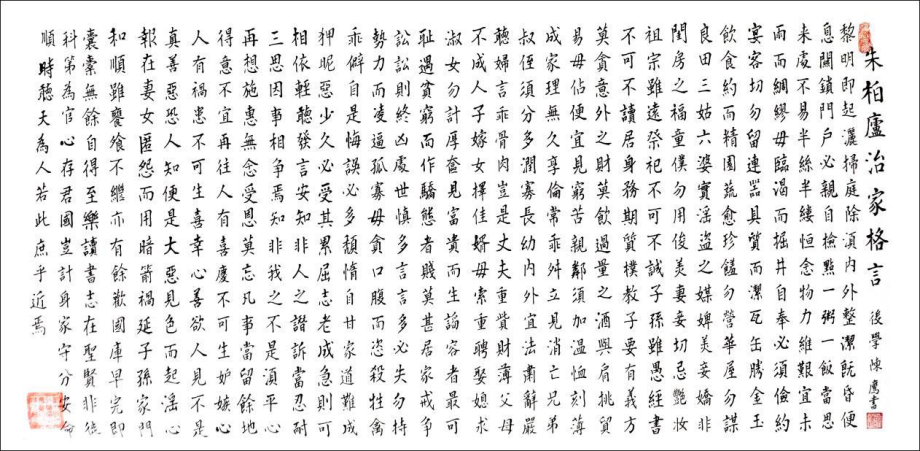 朱柏廬治家格言 後學陳鷹書
黎明即起灑掃庭除須内外整潔既昏便
息關鎖門戶必親自檢點一粥一飯當思
来處不易半絲半縷恒念物力維艱宜未
雨而綢繆毋臨渴而掘井自奉必須儉約
宴客切勿留連器具質而潔瓦缶勝金玉
飲食約而精園蔬愈珍饈勿營華屋勿謀
良田三姑六婆實淫盜之媒婢美妾嬌非
閨房之福童僕勿用俊美妻妾切忌艷妝
祖宗雖遠祭祀不可不誠子孫雖愚經書
不可不讀居身務期質樸教子要有義方
莫貪意外之財莫飲過量之酒與肩挑貿
易毋佔便宜見窮苦親鄰須加温恤刻薄
成家理無久享倫常乖舛立見消亡兄弟
叔侄須分多潤寡長幼内外宜法肅辭嚴
聽婦言乖骨肉豈是丈夫重貲財薄父母
不成人子嫁女擇佳婿毋索重聘娶媳求
淑女勿計厚奩見富貴而生諂容者最可
耻遇貧窮而作驕態者賤莫甚居家戒爭
訟訟則終凶處世慎多言言多必失勿持
勢力而凌逼孤寡毋貪口腹而恣殺牲禽
乖僻自是悔誤必多頹惰自甘家道難成
狎昵惡少久必受其累屈志老成急則可
相依輕聽發言安知非人之譖訴當忍耐
三思因事相爭焉知非我之不是須平心
再想施惠無念受恩莫忘凡事當留餘地
得意不宜再往人有喜慶不可生妒嫉心
人有禍患不可生喜幸心善欲人見不是
真善惡恐人知便是大惡見色而起淫心
報在妻女匿怨而用暗箭禍延子孫家門
和順雖饔飧不繼亦有餘歡國庫早完即
囊橐無餘自得至樂讀書志在聖賢非徒
科第為官心存君國豈計身家守分安命
順時聽天為人若此庶乎近焉